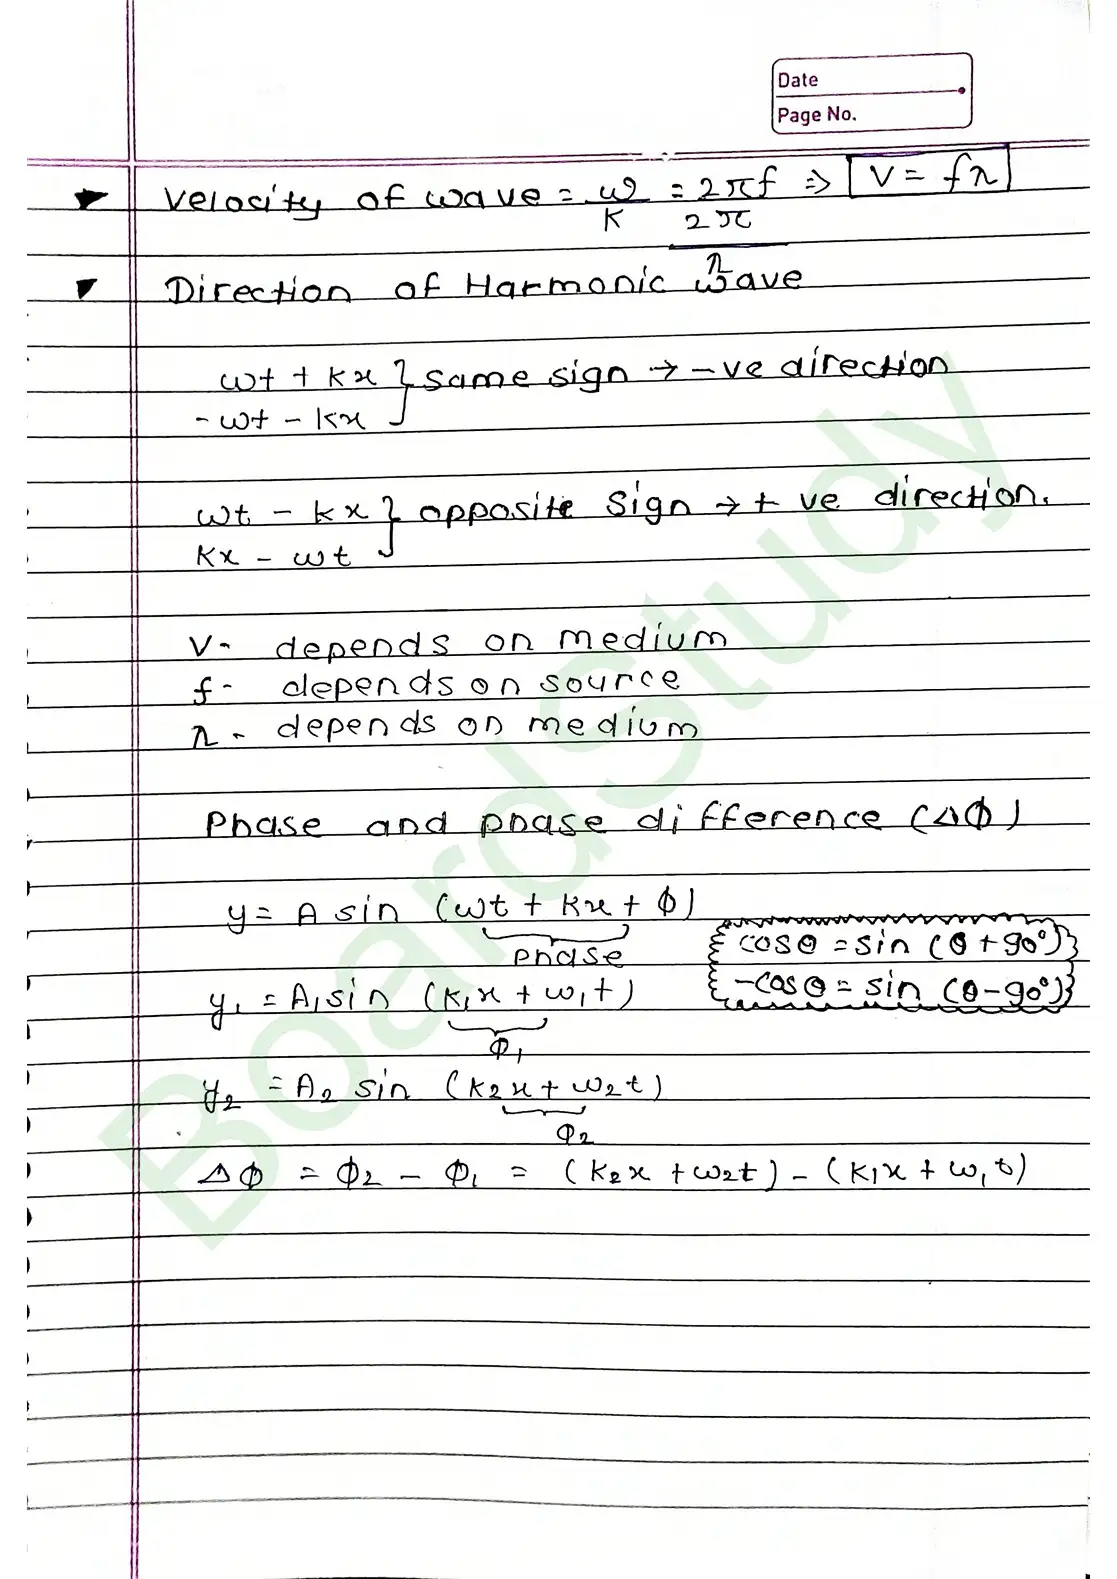 Date
Page No.
Velocity of wave = ω/K = 2πf/(2π/λ) ⇒ V = fλ
Direction of Harmonic wave
ωt + kx } same sign → -ve direction
- ωt - kx
ωt - kx } opposite sign → + ve direction.
Kx - ωt
V - depends on medium
f - depends on source
λ - depends on medium
Phase and phase difference (Δϕ)
y = A sin (ωt + kx + ϕ)
phase
cosθ = sin (θ + 90°)
-cosθ = sin (θ - 90°)
y₁ = A₁ sin (k₁x + ω₁t)
ϕ₁
y₂ = A₂ sin (k₂x + ω₂t)
ϕ₂
Δϕ = ϕ₂ - ϕ₁ = (k₂x + ω₂t) - (k₁x + ω₁t)
BoardStudy